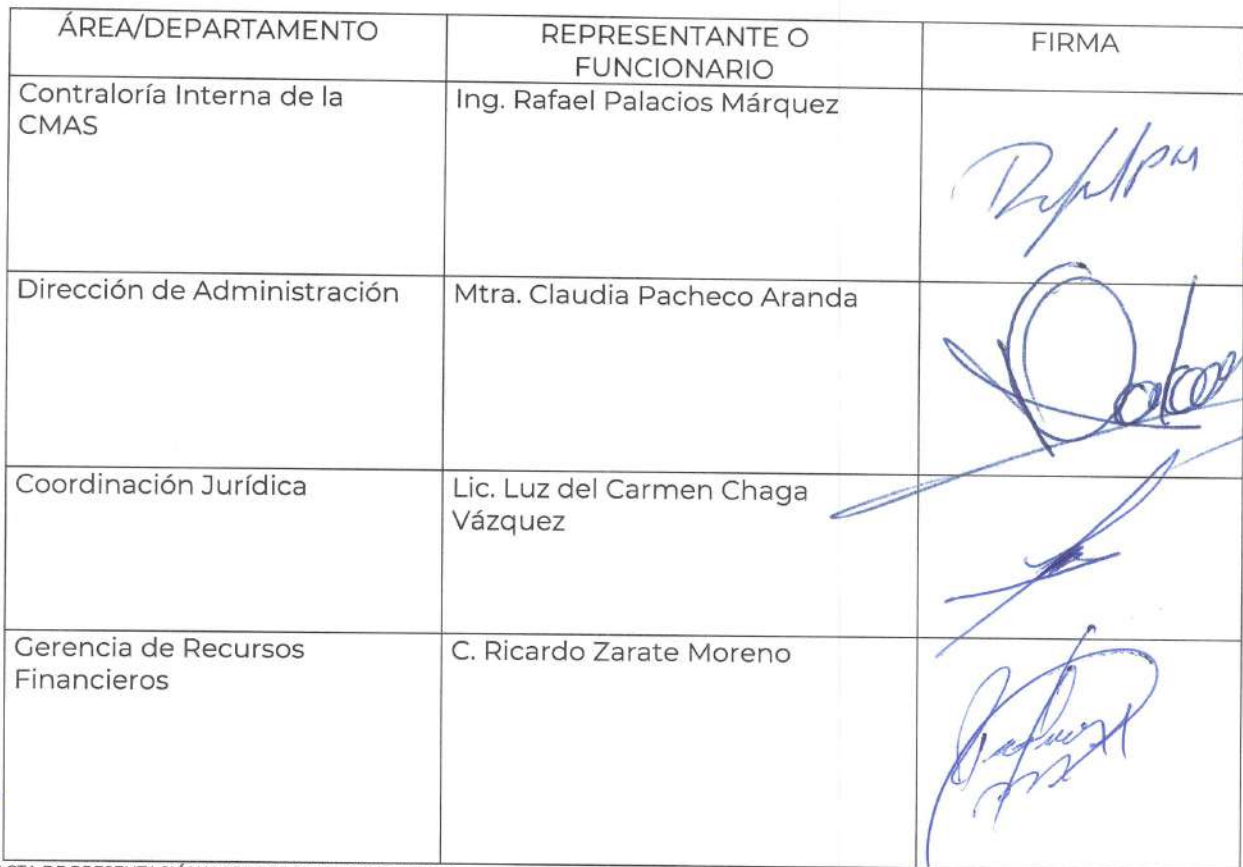 ÁREA/DEPARTAMENTO
REPRESENTANTE O
FUNCIONARIO
FIRMA
Contraloría Interna de la
CMAS
Ing. Rafael Palacios Márquez
Dirección de Administración
Mtra. Claudia Pacheco Aranda
Coordinación Jurídica
Lic. Luz del Carmen Chaga
Vázquez
Gerencia de Recursos
Financieros
C. Ricardo Zarate Moreno